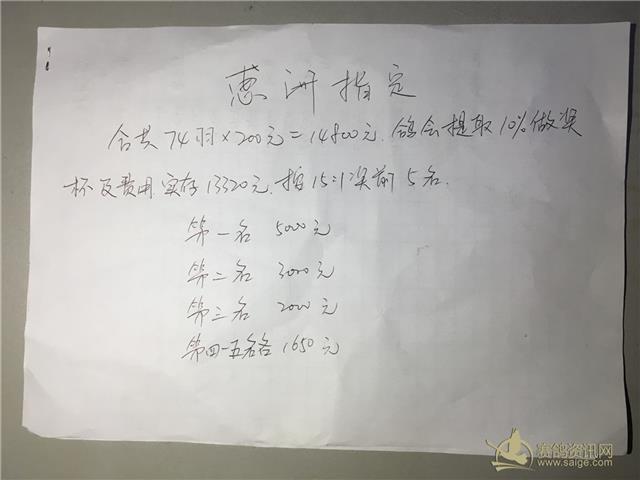 惠州指定
合共74羽×200元=14800元.鸽会提取10%做奖
杯及费用实存13320元.按15:1奖前5名.
第一名 5000元
第二名 3000元
第三名 2000元
第四-五名各 1650元
赛鸽资讯网
www.saige.com